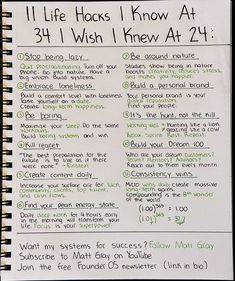 Life Hacks I Know At
34 I Wish I Knew At 24:
① Stop being lazy
Quit procrastinating. Turn off your
phone. Go into nature. Have a
big vision. Build systems.
② Embrace loneliness
Build a comfort level with loneliness.
Take yourself on a date.
Create long-term happiness.
③ Be boring
Maximize your sleep. Do the same
workouts.
Build boring systems and win.
④ Kill regret
The best preparation for the
future is to live as if there
were none. - Einstein
⑤ Create content daily
Increase your surface area for luck,
community, clients, top talent,
and cash flow.
⑥ Find your peak energy state
Daily deep work for 4 hours early
in the morning will transform your
life. Focus is your superpower.
⑦ Be around nature
Studies show being in nature
boosts creativity, reduces stress,
and makes you happier.
⑧ Build a personal brand
Your personal brand is your
global reputation.
Find your people.
⑨ It's the hunt, not the kill
Working well = hunting like a lion.
Recur. Sprint. Rest. Repeat.
⑩ Build your Dream 100
Who are your dream customers?
Reach out to them every month.
⑪ Consistency wins
Micro wins daily create massive
long-term gains.
(1.00)³⁶⁵ = 1.00
(1.01)³⁶⁵ = 37.7
Want my systems for success? Follow Matt Gray
Subscribe to Matt Gray on YouTube
Join the free Founder OS newsletter (link in bio)